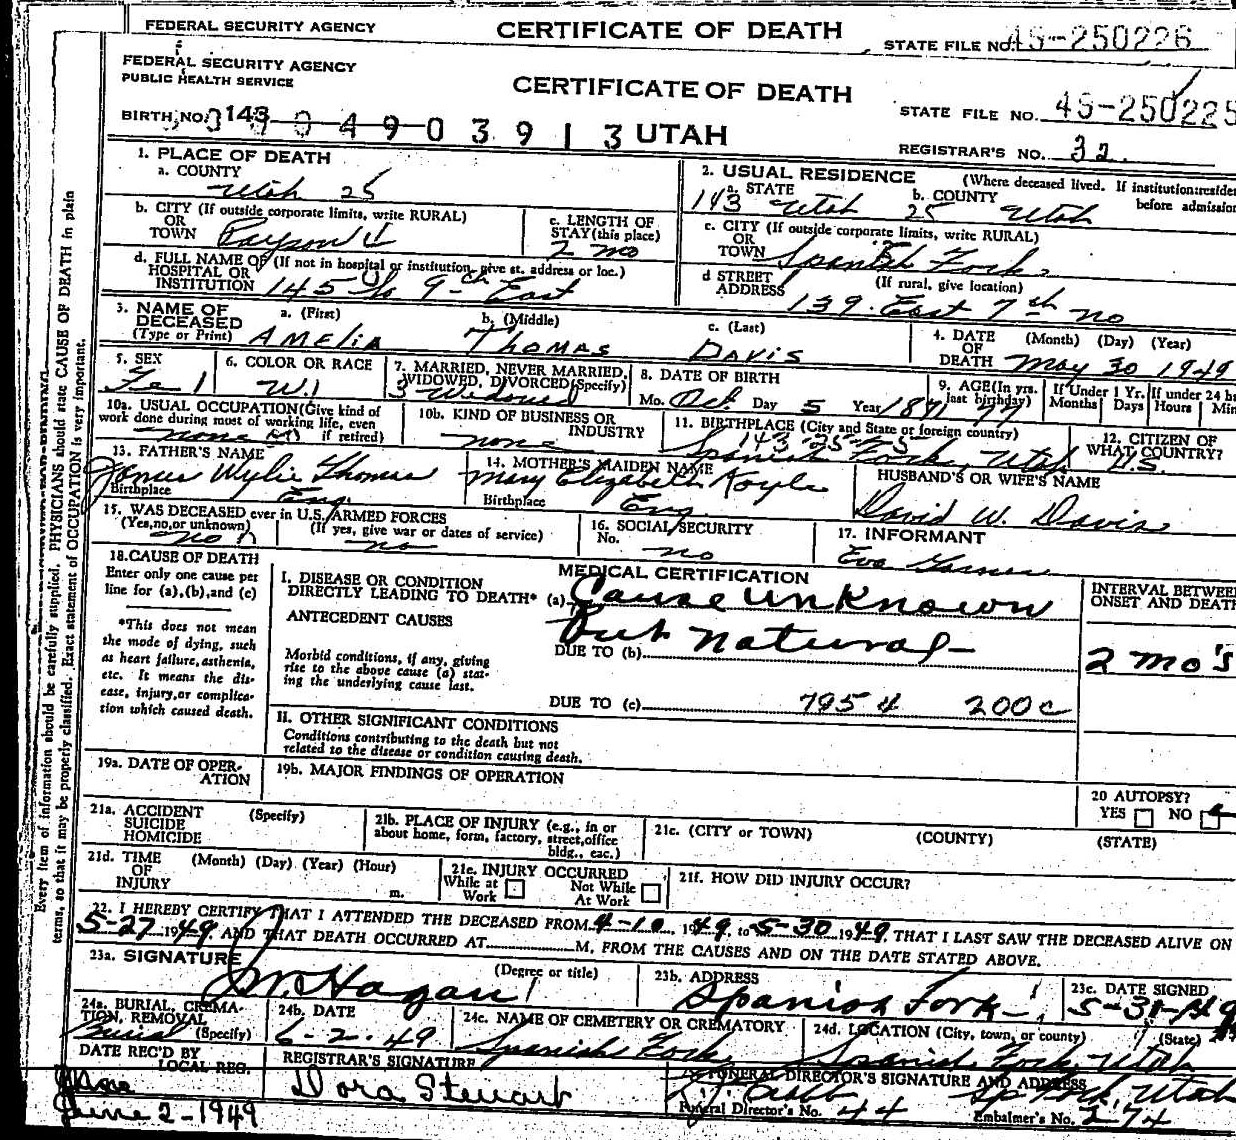 FEDERAL SECURITY AGENCY CERTIFICATE OF DEATH STATE FILE NO. 49-250226
FEDERAL SECURITY AGENCY
PUBLIC HEALTH SERVICE CERTIFICATE OF DEATH STATE FILE NO. 49-250225
BIRTH NO. 143 49 03913 UTAH REGISTRAR'S NO. 32
1. PLACE OF DEATH
a. COUNTY
Utah 25
2. USUAL RESIDENCE (Where deceased lived. If institution: residence before admission
a. STATE b. COUNTY
143 Utah 25 Utah
b. CITY (If outside corporate limits, write RURAL)
OR
TOWN Payson
c. LENGTH OF
STAY (this place)
2 mo
c. CITY (If outside corporate limits, write RURAL)
OR
TOWN Spanish Fork
d. FULL NAME OF (If not in hospital or institution, give st. address or loc.)
HOSPITAL OR
INSTITUTION 145 So 9th East
d STREET (If rural, give location)
ADDRESS 139 East 7th no
3. NAME OF a. (First) b. (Middle) c. (Last)
DECEASED
(Type or Print) AMELIA THOMAS DAVIS
4. DATE (Month) (Day) (Year)
OF
DEATH May 30 1949
5. SEX
Fe 1
6. COLOR OR RACE
W. 1
7. MARRIED, NEVER MARRIED,
WIDOWED, DIVORCED (Specify)
3 Widowed
8. DATE OF BIRTH
Mo. Oct. Day 5 Year 1871
9. AGE (In yrs. last birthday)
77
If Under 1 Yr. If under 24 h
Months Days Hours Min
10a. USUAL OCCUPATION (Give kind of
work done during most of working life, even
if retired)
none
10b. KIND OF BUSINESS OR
INDUSTRY
none
11. BIRTHPLACE (City and State or foreign country)
143 25
Spanish Fork, Utah
12. CITIZEN OF
WHAT COUNTRY?
U.S.
13. FATHER'S NAME
James Wylie Thomas
Birthplace Eng.
14. MOTHER'S MAIDEN NAME
Mary Elizabeth Koyle
Birthplace Eng.
HUSBAND'S OR WIFE'S NAME
David W. Davis
15. WAS DECEASED ever in U.S. ARMED FORCES
(Yes, no, or unknown) (If yes, give war or dates of service)
no no
16. SOCIAL SECURITY
No. no
17. INFORMANT
Eva
18. CAUSE OF DEATH
Enter only one cause per
line for (a), (b), and (c)
*This does not mean
the mode of dying, such
as heart failure, asthenia,
etc. It means the dis-
ease, injury, or complica-
tion which caused death.
MEDICAL CERTIFICATION
I. DISEASE OR CONDITION
DIRECTLY LEADING TO DEATH* (a) Cause unknown
ANTECEDENT CAUSES But natural
Morbid conditions, if any, giving
rise to the above cause (a) stat-
ing the underlying cause last.
DUE TO (b)
DUE TO (c) 7954 200c
INTERVAL BETWEEN
ONSET AND DEATH
2 mo's
II. OTHER SIGNIFICANT CONDITIONS
Conditions contributing to the death but not
related to the disease or condition causing death.
19a. DATE OF OPER-
ATION
19b. MAJOR FINDINGS OF OPERATION
20 AUTOPSY?
YES NO
21a. ACCIDENT (Specify)
SUICIDE
HOMICIDE
21b. PLACE OF INJURY (e.g., in or
about home, form, factory, street, office
bldg., eac.)
21c. (CITY or TOWN) (COUNTY) (STATE)
21d. TIME (Month) (Day) (Year) (Hour)
OF
INJURY m.
21e. INJURY OCCURRED
While at Work Not While At Work
21f. HOW DID INJURY OCCUR?
22. I HEREBY CERTIFY THAT I ATTENDED THE DECEASED FROM 4-10, 1949, to 5-30 1949, THAT I LAST SAW THE DECEASED ALIVE ON
5-27 1949, AND THAT DEATH OCCURRED AT M, FROM THE CAUSES AND ON THE DATE STATED ABOVE.
23a. SIGNATURE (Degree or title)
Hagan
23b. ADDRESS
Spanish Fork
23c. DATE SIGNED
5-31-49
24a. BURIAL, CREMA-
TION, REMOVAL
(Specify)
Burial
24b. DATE
6-2-49
24c. NAME OF CEMETERY OR CREMATORY
Spanish Fork
24d. LOCATION (City, town, or county) (State)
Spanish Fork, Utah
DATE REC'D BY
LOCAL REG.
June 2-1949
REGISTRAR'S SIGNATURE
Dora Stewart
FUNERAL DIRECTOR'S SIGNATURE AND ADDRESS
Sp Fork, Utah
Funeral Director's No. 44 Embalmer's No. 274
Every item of information should be carefully supplied. PHYSICIANS should state CAUSE OF DEATH in plain
terms, so that it may be properly classified. Exact statement of OCCUPATION is very important.